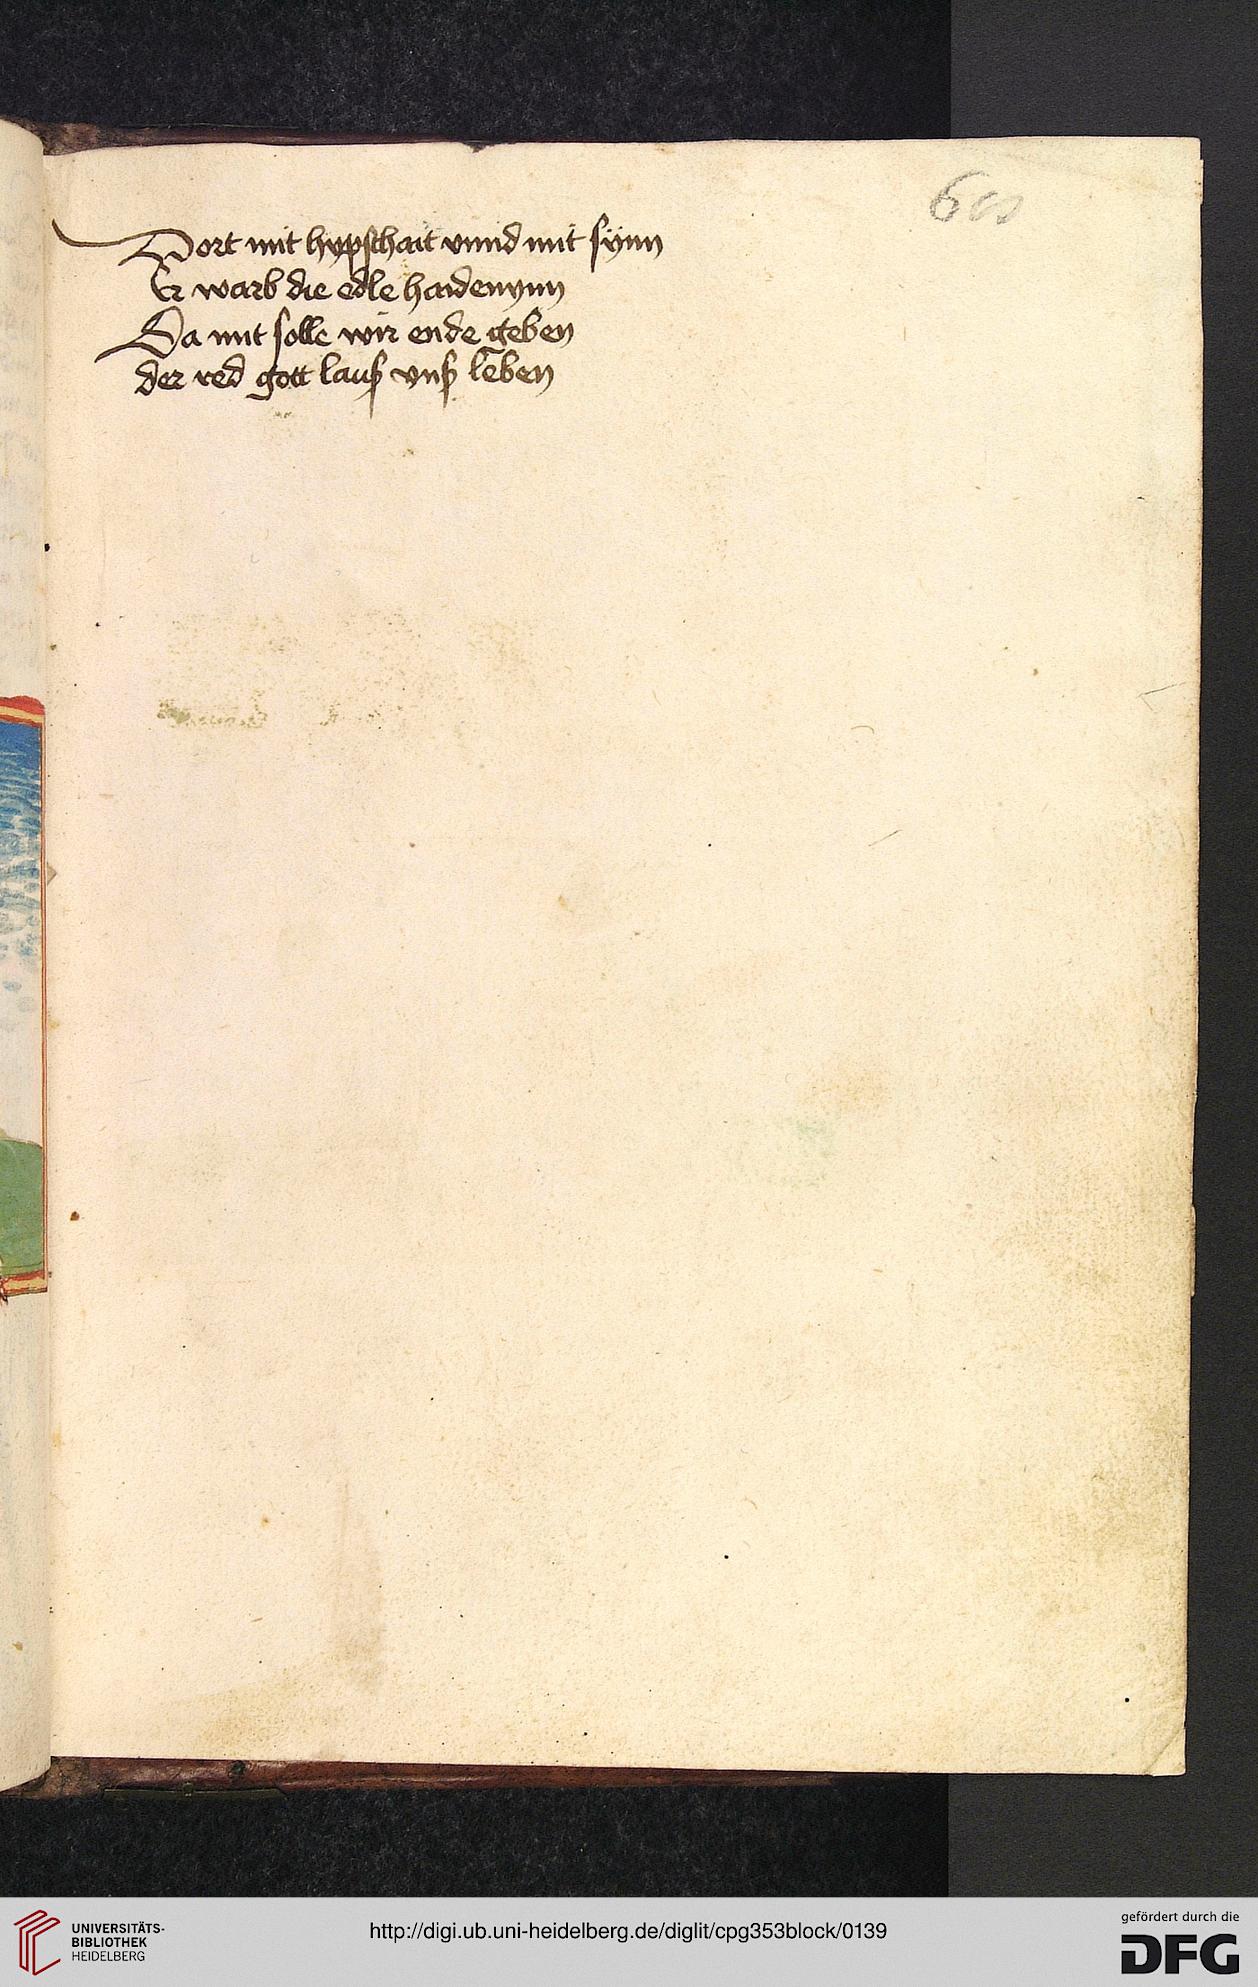 Dort mit hypschait vnnd mit synn
Er warb die edle haidenynn
Da mit solle wir ende geben
der red gott lauß vnß leben
UNIVERSITÄTS-
BIBLIOTHEK
HEIDELBERG
http://digi.ub.uni-heidelberg.de/diglit/cpg353block/0139
gefördert durch die
DFG